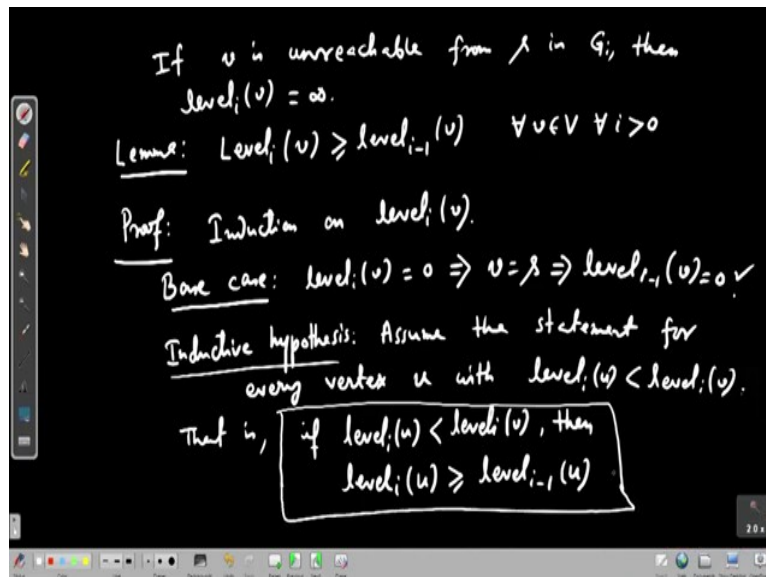 If v is unreachable from s in Gᵢ, then
levelᵢ(v) = ∞.
Lemma: Levelᵢ(v) ⩾ levelᵢ₋₁(v) ∀v∈V ∀i>0
Proof: Induction on levelᵢ(v).
Base case: levelᵢ(v) = 0 ⇒ v = s ⇒ levelᵢ₋₁(v) = 0 ✓
Inductive hypothesis: Assume the statement for
every vertex u with levelᵢ(u) < levelᵢ(v).
That is, if levelᵢ(u) < levelᵢ(v), then
levelᵢ(u) ⩾ levelᵢ₋₁(u)
2.0x